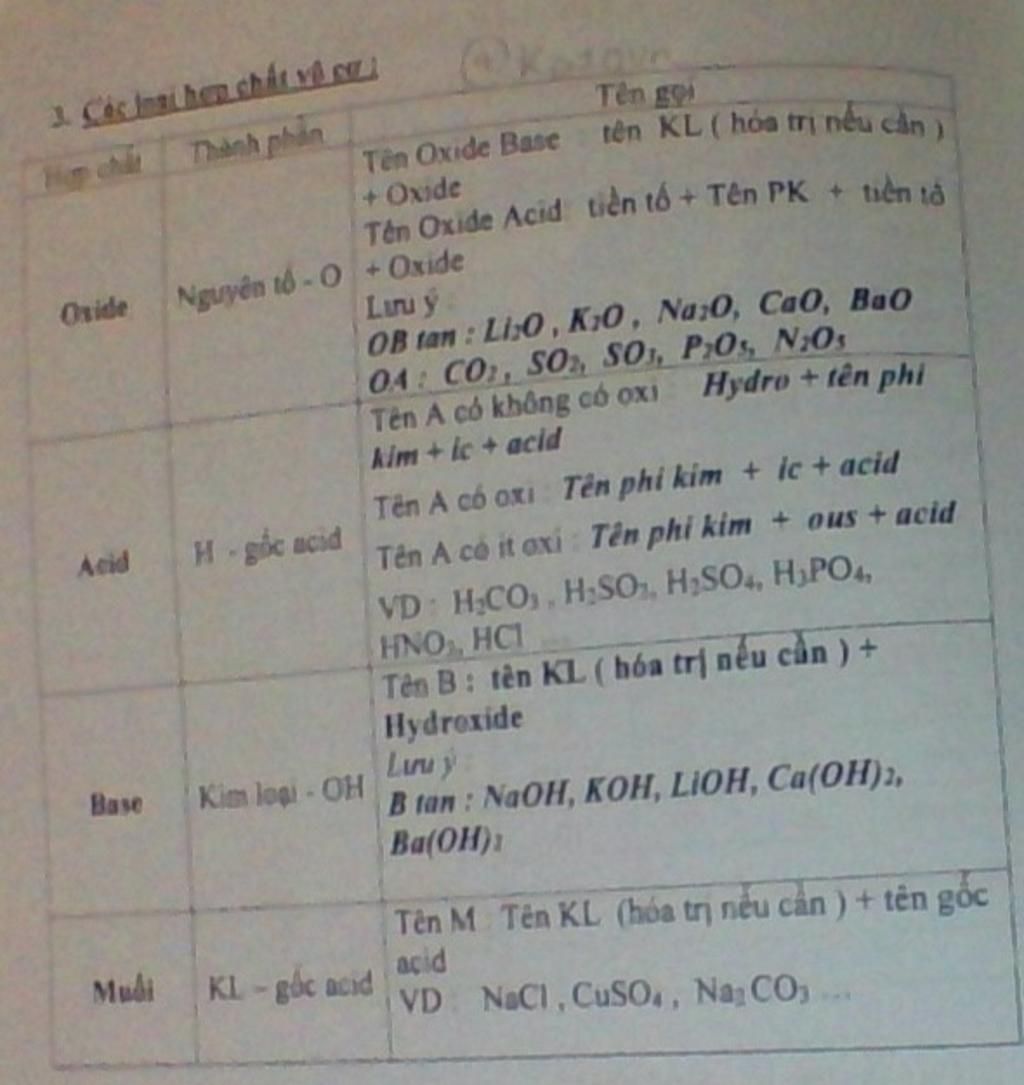 3. Các loại hợp chất vô cơ :
Hợp chất
Thành phần
Tên gọi
Oxide
Nguyên tố - O
Tên Oxide Base tên KL ( hóa trị nếu cần )
+ Oxide
Tên Oxide Acid tiền tố + Tên PK + tiền tố
+ Oxide
Lưu ý
OB tan : Li2O , K2O , Na2O, CaO, BaO
OA : CO2 , SO2, SO3, P2O5, N2O5
Acid
H - gốc acid
Tên A có không có oxi Hydro + tên phi
kim + ic + acid
Tên A có oxi : Tên phi kim + ic + acid
Tên A có ít oxi : Tên phi kim + ous + acid
VD : H2CO3 , H2SO3, H2SO4, H3PO4,
HNO3, HCl
Base
Kim loại - OH
Tên B : tên KL ( hóa trị nếu cần ) +
Hydroxide
Lưu ý
B tan : NaOH, KOH, LiOH, Ca(OH)2,
Ba(OH)2
Muối
KL – gốc acid
Tên M Tên KL (hóa trị nếu cần ) + tên gốc
acid
VD NaCl , CuSO4 , Na2CO3 ...